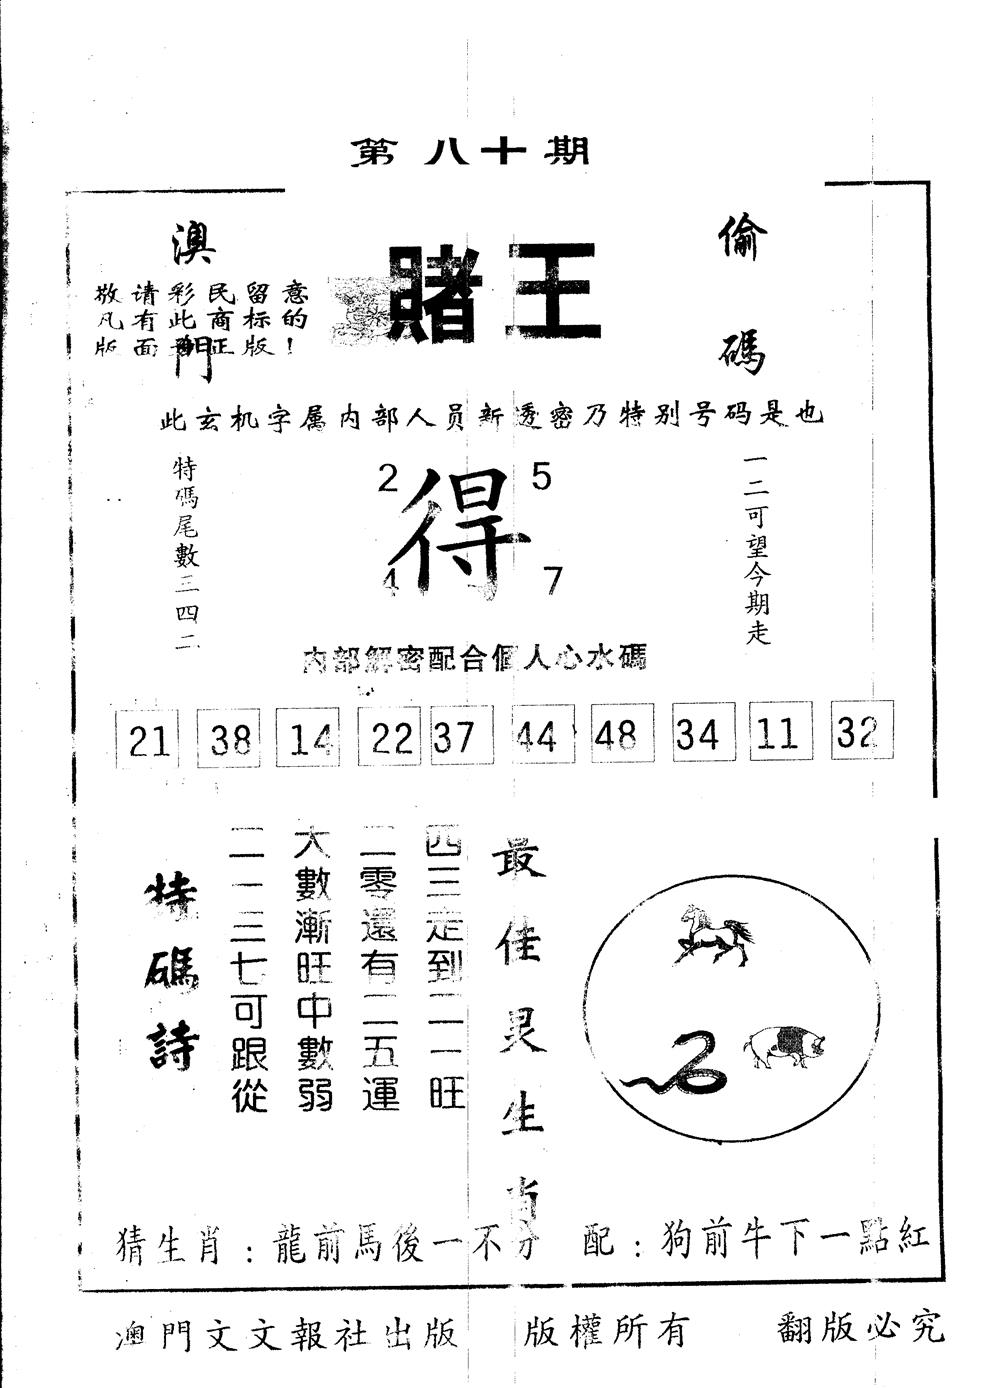 第八十期
澳門
賭王
偷碼
敬请彩民留意
凡有此商标的
版面 正版！
此玄机字属内部人员新透密乃特别号码是也
特碼尾數三四二
2 5
得
4 7
一二可望今期走
内部解密配合個人心水碼
21 38 14 22 37 44 48 34 11 32
特碼詩
二一三七可跟從
大數漸旺中數弱
二零還有二五運
四三走到二一旺
最佳灵生肖
猜生肖：龍前馬後一不分 配：狗前牛下一點紅
澳門文文報社出版 版權所有 翻版必究